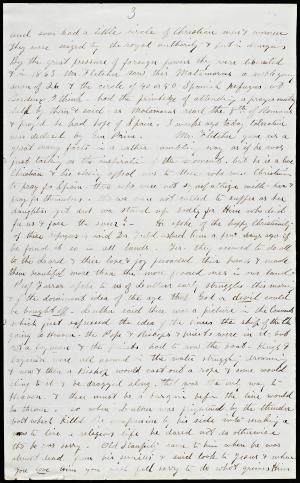 3
and soon had a little circle of Christian men & women
They were seized by the royal authority & put in dungeons
By the great pressure of foreign powers they were liberated
& in 1863 Mr. Fletcher saw this Matamoros a
man of 26 & the circle of 40 or 50 Spanish refugees in
London I think had the privilege of attending a prayer meeting
with them & said Matamoros read the of Romans
& prayed & had hope of Spain. I may say today toleration
was decreed by Gen Prim. Mr. Fletcher gave us a
great many facts in a rather rambling way as if he was
just talking on the inspiration of the moment but he is a true
Christian & his closing appeal was to those who were Christians
to pray for Spain, those who were not
pray for themselves. We are not called to suffer as her
daughters yet but we stand up today for Him who died
for us & face the He spoke of the happy Christianity
of these refugees said Dr. Todd asked him a few days ago if
he found it so in all lands. Yes they seemed to do all
to the Lord & their love & joy pervaded their homes & made
them beautiful more than the more favored ones in our land.
Prof Farrar spoke to us of Luther early struggles this morn
& of the dominant idea of the age that God or devil could
be bought off. Luther said there was a picture in the
which just expressed the idea of the times the ship of the Ch
going to Heaven. The Pope & Bishops & Priests were in it but
not a lay man & the Monks had to row the boat. King &
were all around in the water struggling drowning
& now & then a Bishop would cast out a rope & some would
cling to it & be dragged along, that was the only way to
Heaven & there must be a bargain before the line would
be thrown. so when Luther was frightened by the thunder
bolt which killed his companion by his side into making a
vow to live a religious life he dared not do otherwise
tho he was sorry. Old Staupitz came to him when he was
almost dead from his and said look to Jesus & when
you love Him you will feel sorry to do what grieves Him